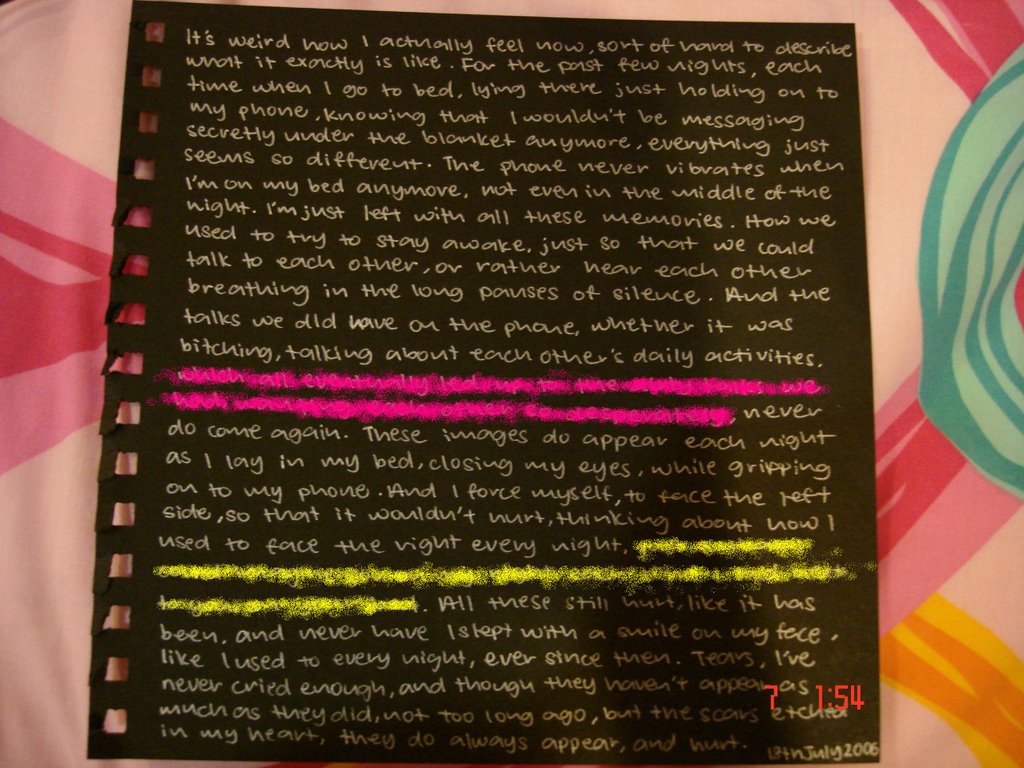 It's weird how I actually feel now, sort of hard to describe
what it exactly is like. For the past few nights, each
time when I go to bed, lying there just holding on to
my phone, knowing that I wouldn't be messaging
secretly under the blanket anymore, everything just
seems so different. The phone never vibrates when
I'm on my bed anymore, not even in the middle of the
night. I'm just left with all these memories. How we
used to try to stay awake, just so that we could
talk to each other, or rather hear each other
breathing in the long pauses of silence. And the
talks we did have on the phone, whether it was
bitching, talking about each other's daily activities.
never
do come again. These images do appear each night
as I lay in my bed, closing my eyes, while gripping
on to my phone. And I force myself, to face the left
side, so that it wouldn't hurt, thinking about how I
used to face the right every night,
. All these still hurt, like it has
been, and never have I slept with a smile on my face,
like I used to every night, ever since then. Tears, I've
never cried enough, and though they haven't appear as
much as they did, not too long ago, but the scars etched
in my heart, they do always appear, and hurt. 13th July 2006
7 1:54